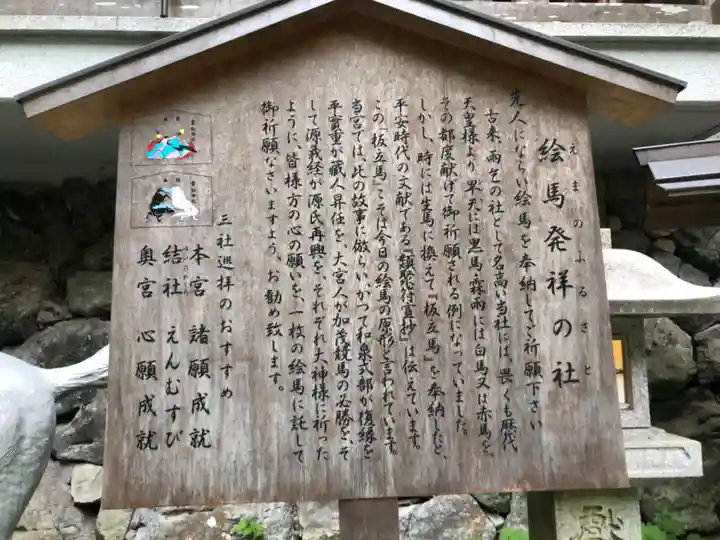 絵馬発祥の社
えまのふるさと
先人にならい絵馬を奉納してご祈願下さい
古来、雨乞の社として名高い当社には、畏くも歴代
天皇様より、旱天には黒馬、霖雨には白馬又は赤馬を、
その都度献げて御祈願される例になっていました。
しかし、時には生馬に換えて『板立馬』を奉納したと、
平安時代の文献である『類聚符宣抄』は伝えています。
この『板立馬』こそは今日の絵馬の原形と言われています。
当宮では、此の故事に倣らい、かつて和泉式部が復縁を
平實重が蔵人昇任を、大宮人が加茂競馬の必勝を、そ
して源義経が源氏再興を、それぞれ大神様に祈った
ように、皆様方の心の願いを、一枚の絵馬に託して
御祈願なさいますよう、お勧め致します。
三社巡拝のおすすめ
本宮 諸願成就
結社 えんむすび
奥宮 心願成就
献